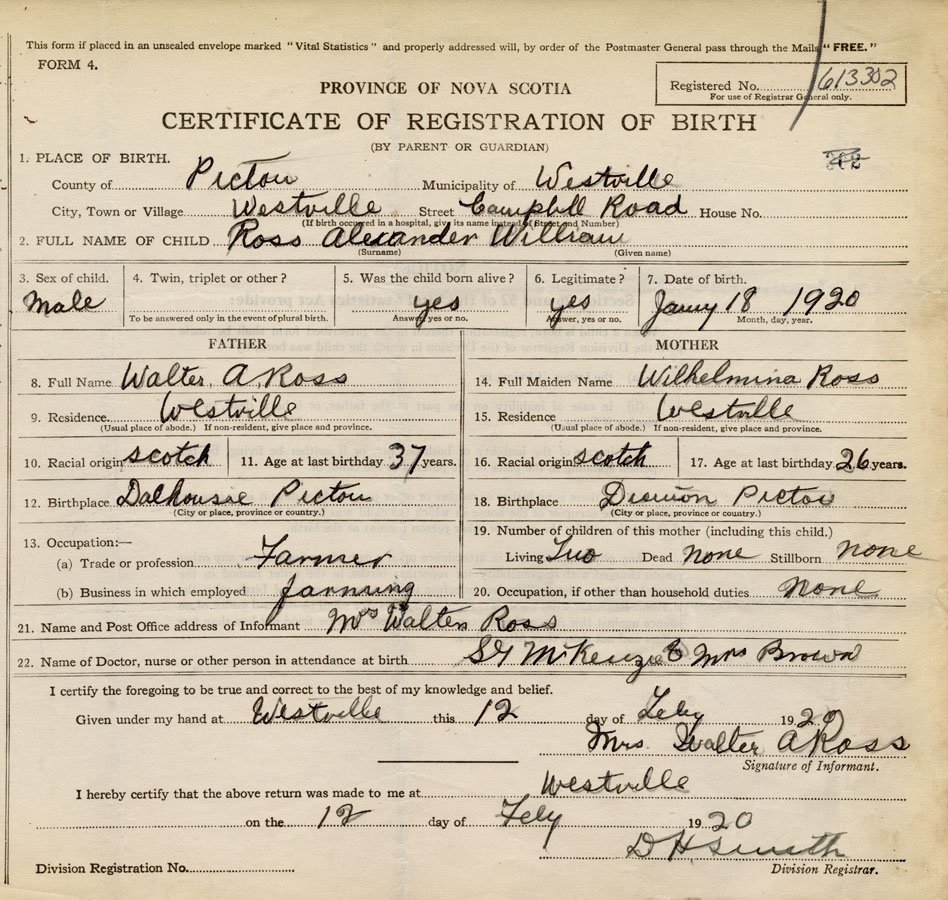 This form if placed in an unsealed envelope marked "Vital Statistics" and properly addressed will, by order of the Postmaster General pass through the Mails "FREE."
FORM 4.
Registered No. 613302
For use of Registrar General only.
PROVINCE OF NOVA SCOTIA
CERTIFICATE OF REGISTRATION OF BIRTH
(BY PARENT OR GUARDIAN)
1. PLACE OF BIRTH.
County of Pictou Municipality of Westville
City, Town or Village Westville Street Campbell Road House No.
(If birth occurred in a hospital, give its name instead of Street and Number)
2. FULL NAME OF CHILD Ross Alexander William
(Surname) (Given name)
3. Sex of child. 4. Twin, triplet or other? 5. Was the child born alive? 6. Legitimate? 7. Date of birth.
Male yes yes Jany 18 1920
To be answered only in the event of plural birth. Answer, yes or no. Answer, yes or no. Month, day, year.
FATHER MOTHER
8. Full Name Walter A. Ross 14. Full Maiden Name Wilhelmina Ross
9. Residence. Westville 15. Residence Westville
(Usual place of abode.) If non-resident, give place and province. (Usual place of abode.) If non-resident, give place and province.
10. Racial origin scotch 11. Age at last birthday 37 years. 16. Racial origin scotch 17. Age at last birthday 26 years.
12. Birthplace Dalhousie Pictou 18. Birthplace Pictou
(City or place, province or country.) (City or place, province or country.)
19. Number of children of this mother (including this child.)
13. Occupation:—
Living Two Dead none Stillborn none
(a) Trade or profession Farmer
(b) Business in which employed farming 20. Occupation, if other than household duties. none
21. Name and Post Office address of Informant Mrs Walter Ross
22. Name of Doctor, nurse or other person in attendance at birth McKenzie & Mrs Brown
I certify the foregoing to be true and correct to the best of my knowledge and belief.
Given under my hand at Westville this 12 day of Feby 1920
Mrs. Walter A Ross
Signature of Informant.
I hereby certify that the above return was made to me at Westville
on the 12 day of Feby 1920
D H Smith
Division Registration No. Division Registrar.